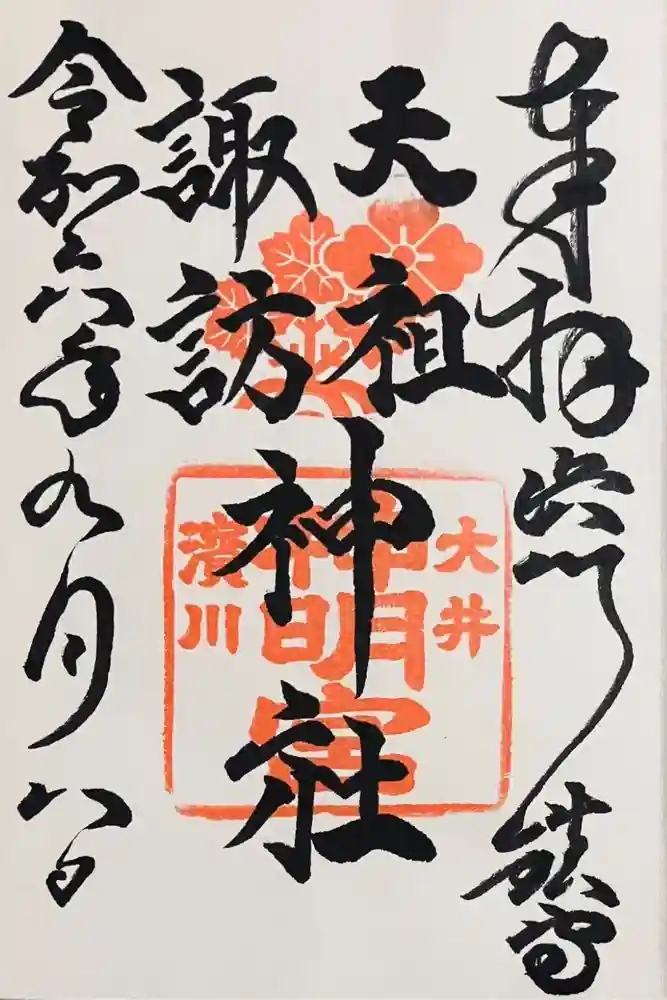 奉拝 浜川鎮守
天祖
諏訪
神社
令和六年九月八日
大井
神明宮
濱川